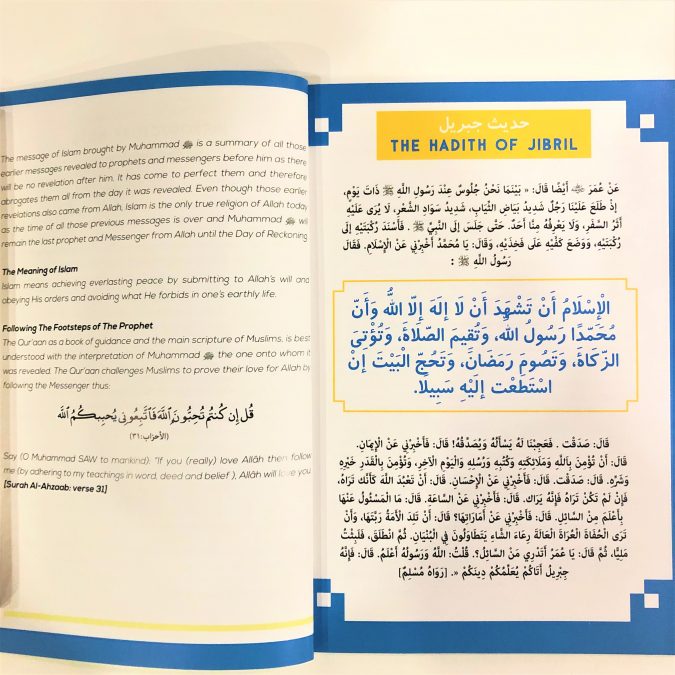 The message of Islam brought by Muhammad ﷺ is a summary of all those
earlier messages revealed to prophets and messengers before him as there
will be no revelation after him. It has come to perfect them and therefore
abrogates them all from the day it was revealed. Even though those earlier
revelations also came from Allah, Islam is the only true religion of Allah today
as the time of all those previous messages is over and Muhammad ﷺ will
remain the last prophet and Messenger from Allah until the Day of Reckoning
The Meaning of Islam
Islam means achieving everlasting peace by submitting to Allah's will and
obeying His orders and avoiding what He forbids in one's earthly life.
Following The Footsteps of The Prophet
The Qur'aan as a book of guidance and the main scripture of Muslims, is best
understood with the interpretation of Muhammad ﷺ the one onto whom it
was revealed. The Qur'aan challenges Muslims to prove their love for Allah by
following the Messenger thus:
قُل إِن كُنتُمْ تُحِبُّونَ اللَّهَ فَاتَّبِعُونِي يُحْبِبْكُمُ اللَّهُ
(الأحزاب: ٣١)
Say (O Muhammad SAW to mankind): "If you (really) love Allâh then follow
me (by adhering to my teachings in word, deed and belief ), Allâh will love you
[Surah Al-Ahzaab: verse 31]
حديث جبريل
THE HADITH OF JIBRIL
عَنْ عُمَرَ ﷺ، أَيْضًا قَالَ: « بَيْنَمَا نَحْنُ جُلُوسٌ عِنْدَ رَسُولِ اللَّهِ ﷺ ذَاتَ يَوْمٍ،
إِذْ طَلَعَ عَلَيْنَا رَجُلٌ شَدِيدُ بَيَاضِ الثِّيَابِ، شَدِيدُ سَوَادِ الشَّعْرِ، لَا يُرَى عَلَيْهِ
أَثَرُ السَّفَرِ، وَلَا يَعْرِفُهُ مِنَّا أَحَدٌ. حَتَّى جَلَسَ إِلَى النَّبِيِّ ﷺ . فَأَسْنَدَ رُكْبَتَيْهِ إِلَى
رُكْبَتَيْهِ، وَوَضَعَ كَفَّيْهِ عَلَى فَخِذَيْهِ، وَقَالَ: يَا مُحَمَّدُ أَخْبِرْنِي عَنْ الْإِسْلَامِ. فَقَالَ
رَسُولُ اللَّهِ ﷺ :
الْإِسْلَامُ أَنْ تَشْهَدَ أَنْ لَا إِلَهَ إِلَّا اللَّهُ وَأَنَّ
مُحَمَّدًا رَسُولُ الله، وَتُقِيمَ الصَّلَاةَ، وَتُؤْتِيَ
الزَّكَاةَ، وَتَصُومَ رَمَضَانَ، وَتَحُجَّ الْبَيْتَ إِنْ
اسْتَطَعْت إِلَيْهِ سَبِيلًا.
قَالَ: صَدَقْت . فَعَجِبْنَا لَهُ يَسْأَلُهُ وَيُصَدِّقُهُ! قَالَ: فَأَخْبِرْنِي عَنْ الْإِيمَانِ.
قَالَ: أَنْ تُؤْمِنَ بِاَللَّهِ وَمَلَائِكَتِهِ وَكُتُبِهِ وَرُسُلِهِ وَالْيَوْمِ الْآخِرِ، وَتُؤْمِنَ بِالْقَدَرِ خَيْرِهِ
وَشَرِّهِ. قَالَ: صَدَقْت. قَالَ: فَأَخْبِرْنِي عَنْ الْإِحْسَانِ. قَالَ: أَنْ تَعْبُدَ اللَّهَ كَأَنَّك تَرَاهُ،
فَإِنْ لَمْ تَكُنْ تَرَاهُ فَإِنَّهُ يَرَاك. قَالَ: فَأَخْبِرْنِي عَنْ السَّاعَةِ. قَالَ: مَا الْمَسْئُولُ عَنْهَا
بِأَعْلَمَ مِنْ السَّائِلِ. قَالَ: فَأَخْبِرْنِي عَنْ أَمَارَاتِهَا؟ قَالَ: أَنْ تَلِدَ الْأَمَةُ رَبَّتَهَا، وَأَنْ
تَرَى الْحُفَاةَ الْعُرَاةَ الْعَالَةَ رِعَاءَ الشَّاءِ يَتَطَاوَلُونَ فِي الْبُنْيَانِ. ثُمَّ انْطَلَقَ، فَلَبِثْتُ
مَلِيًّا، ثُمَّ قَالَ: يَا عُمَرُ أَتَدْرِي مَنْ السَّائِلُ؟. قُلْتُ: اللَّهُ وَرَسُولُهُ أَعْلَمُ. قَالَ: فَإِنَّهُ
جِبْرِيلُ أَتَاكُمْ يُعَلِّمُكُمْ دِينَكُمْ «. [رَوَاهُ مُسْلِمٌ]